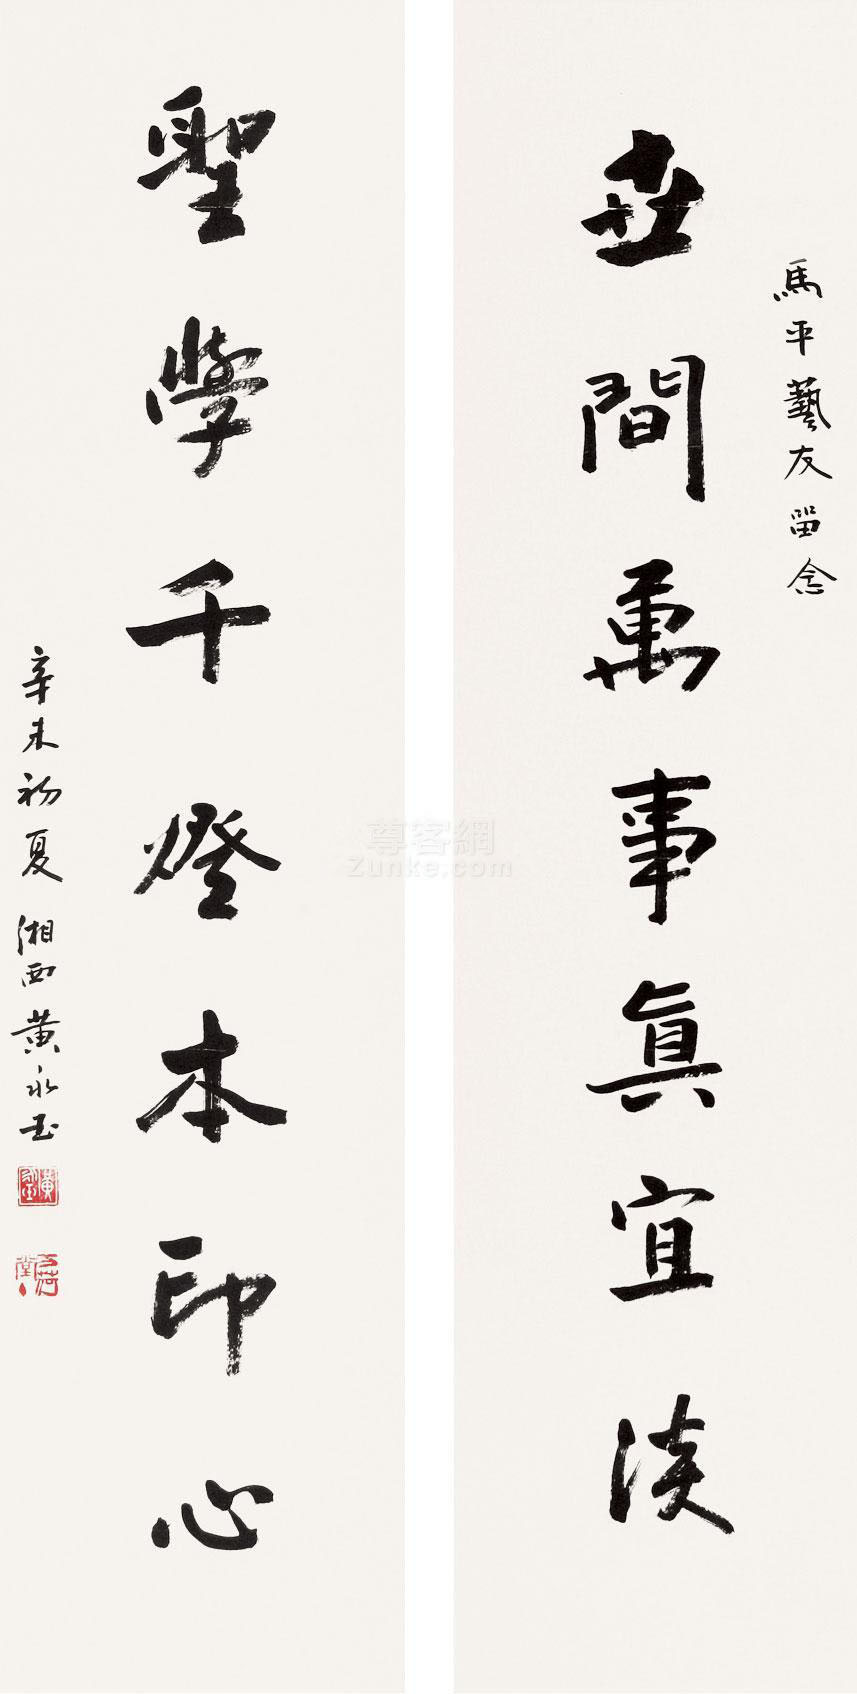 馬平藝友留念
世間萬事真宜淡
聖學千燈本印心
辛未初夏 湘西黃永玉
尊客網
Zunke.com